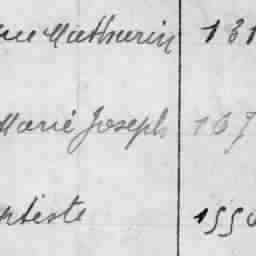 Mathurin 131
Marie Joseph 167
ptiste 1550